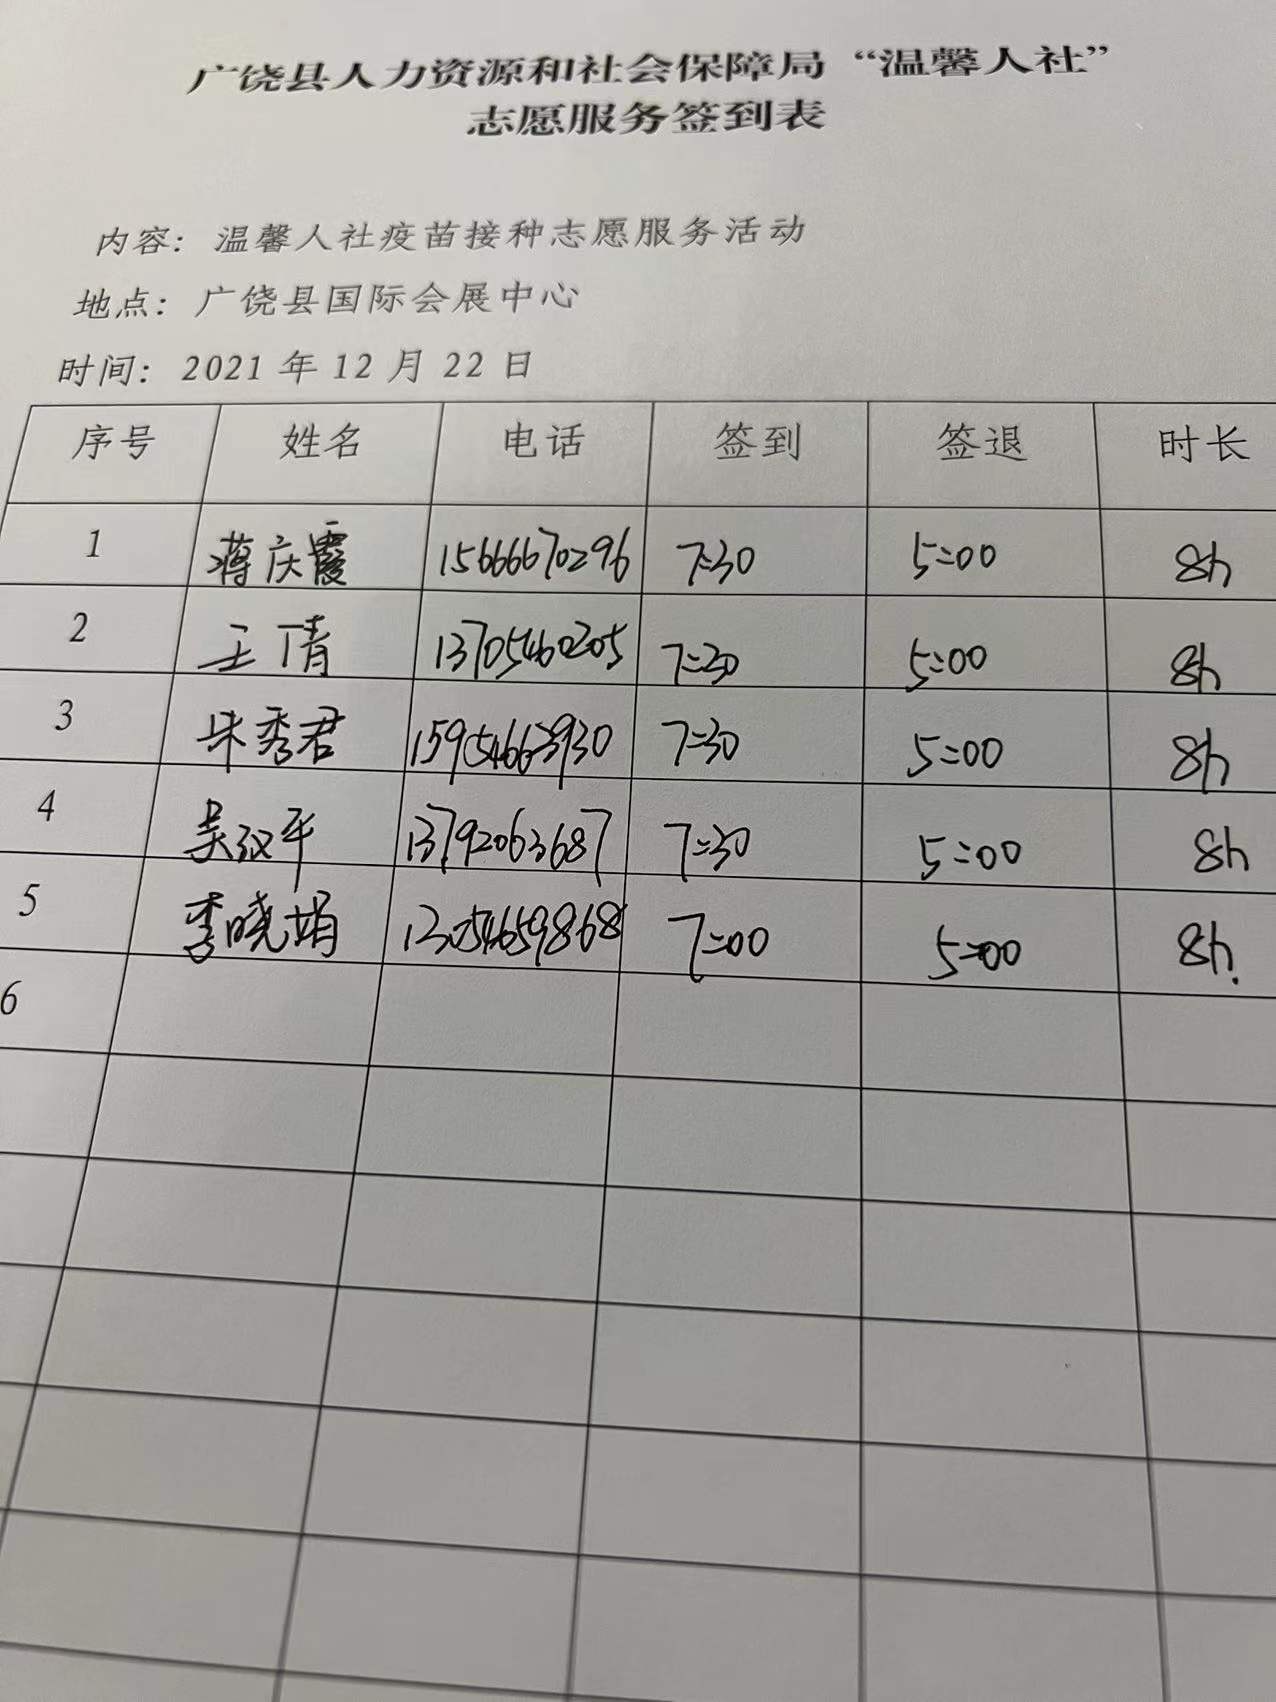 广饶县人力资源和社会保障局“温馨人社”
志愿服务签到表
内容：温馨人社疫苗接种志愿服务活动
地点：广饶县国际会展中心
时间：2021年12月22日
序号 姓名 电话 签到 签退 时长
1 蒋庆霞 15666670296 7:30 5:00 8h
2 王倩 13705460205 7:30 5:00 8h
3 朱秀君 15954663930 7:30 5:00 8h
4 吴汉平 13792063687 7:30 5:00 8h
5 李晓娟 7:00 5:00 8h.
6